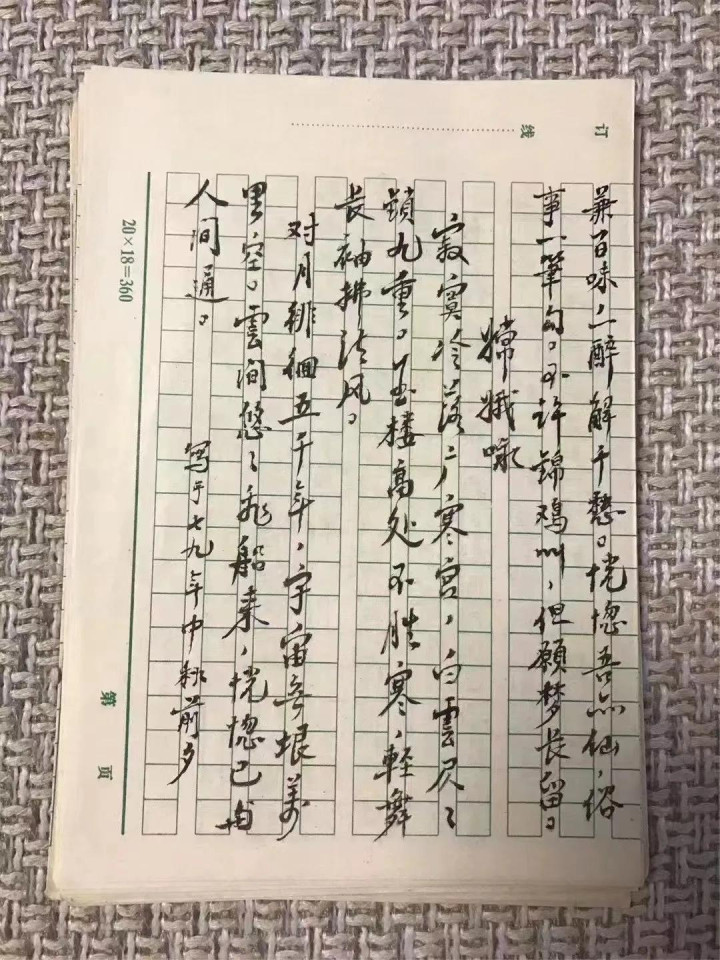 兼百味，一醉解千愁。恍惚吾亦仙，俗
事一筆勾。不许錦鸡叫，但願梦长留。
嫦娥咏
寂寞冷落广寒宫，白雲尺々
鎖九重。玉楼高处不胜寒，轻舞
长袖拂清风。
对月徘徊五千年，宇宙无垠万
里空。雲间悠々飛船来，恍惚已由
人间通。
寫于七九年中秋前夕
订
线
20×18=360
第 页